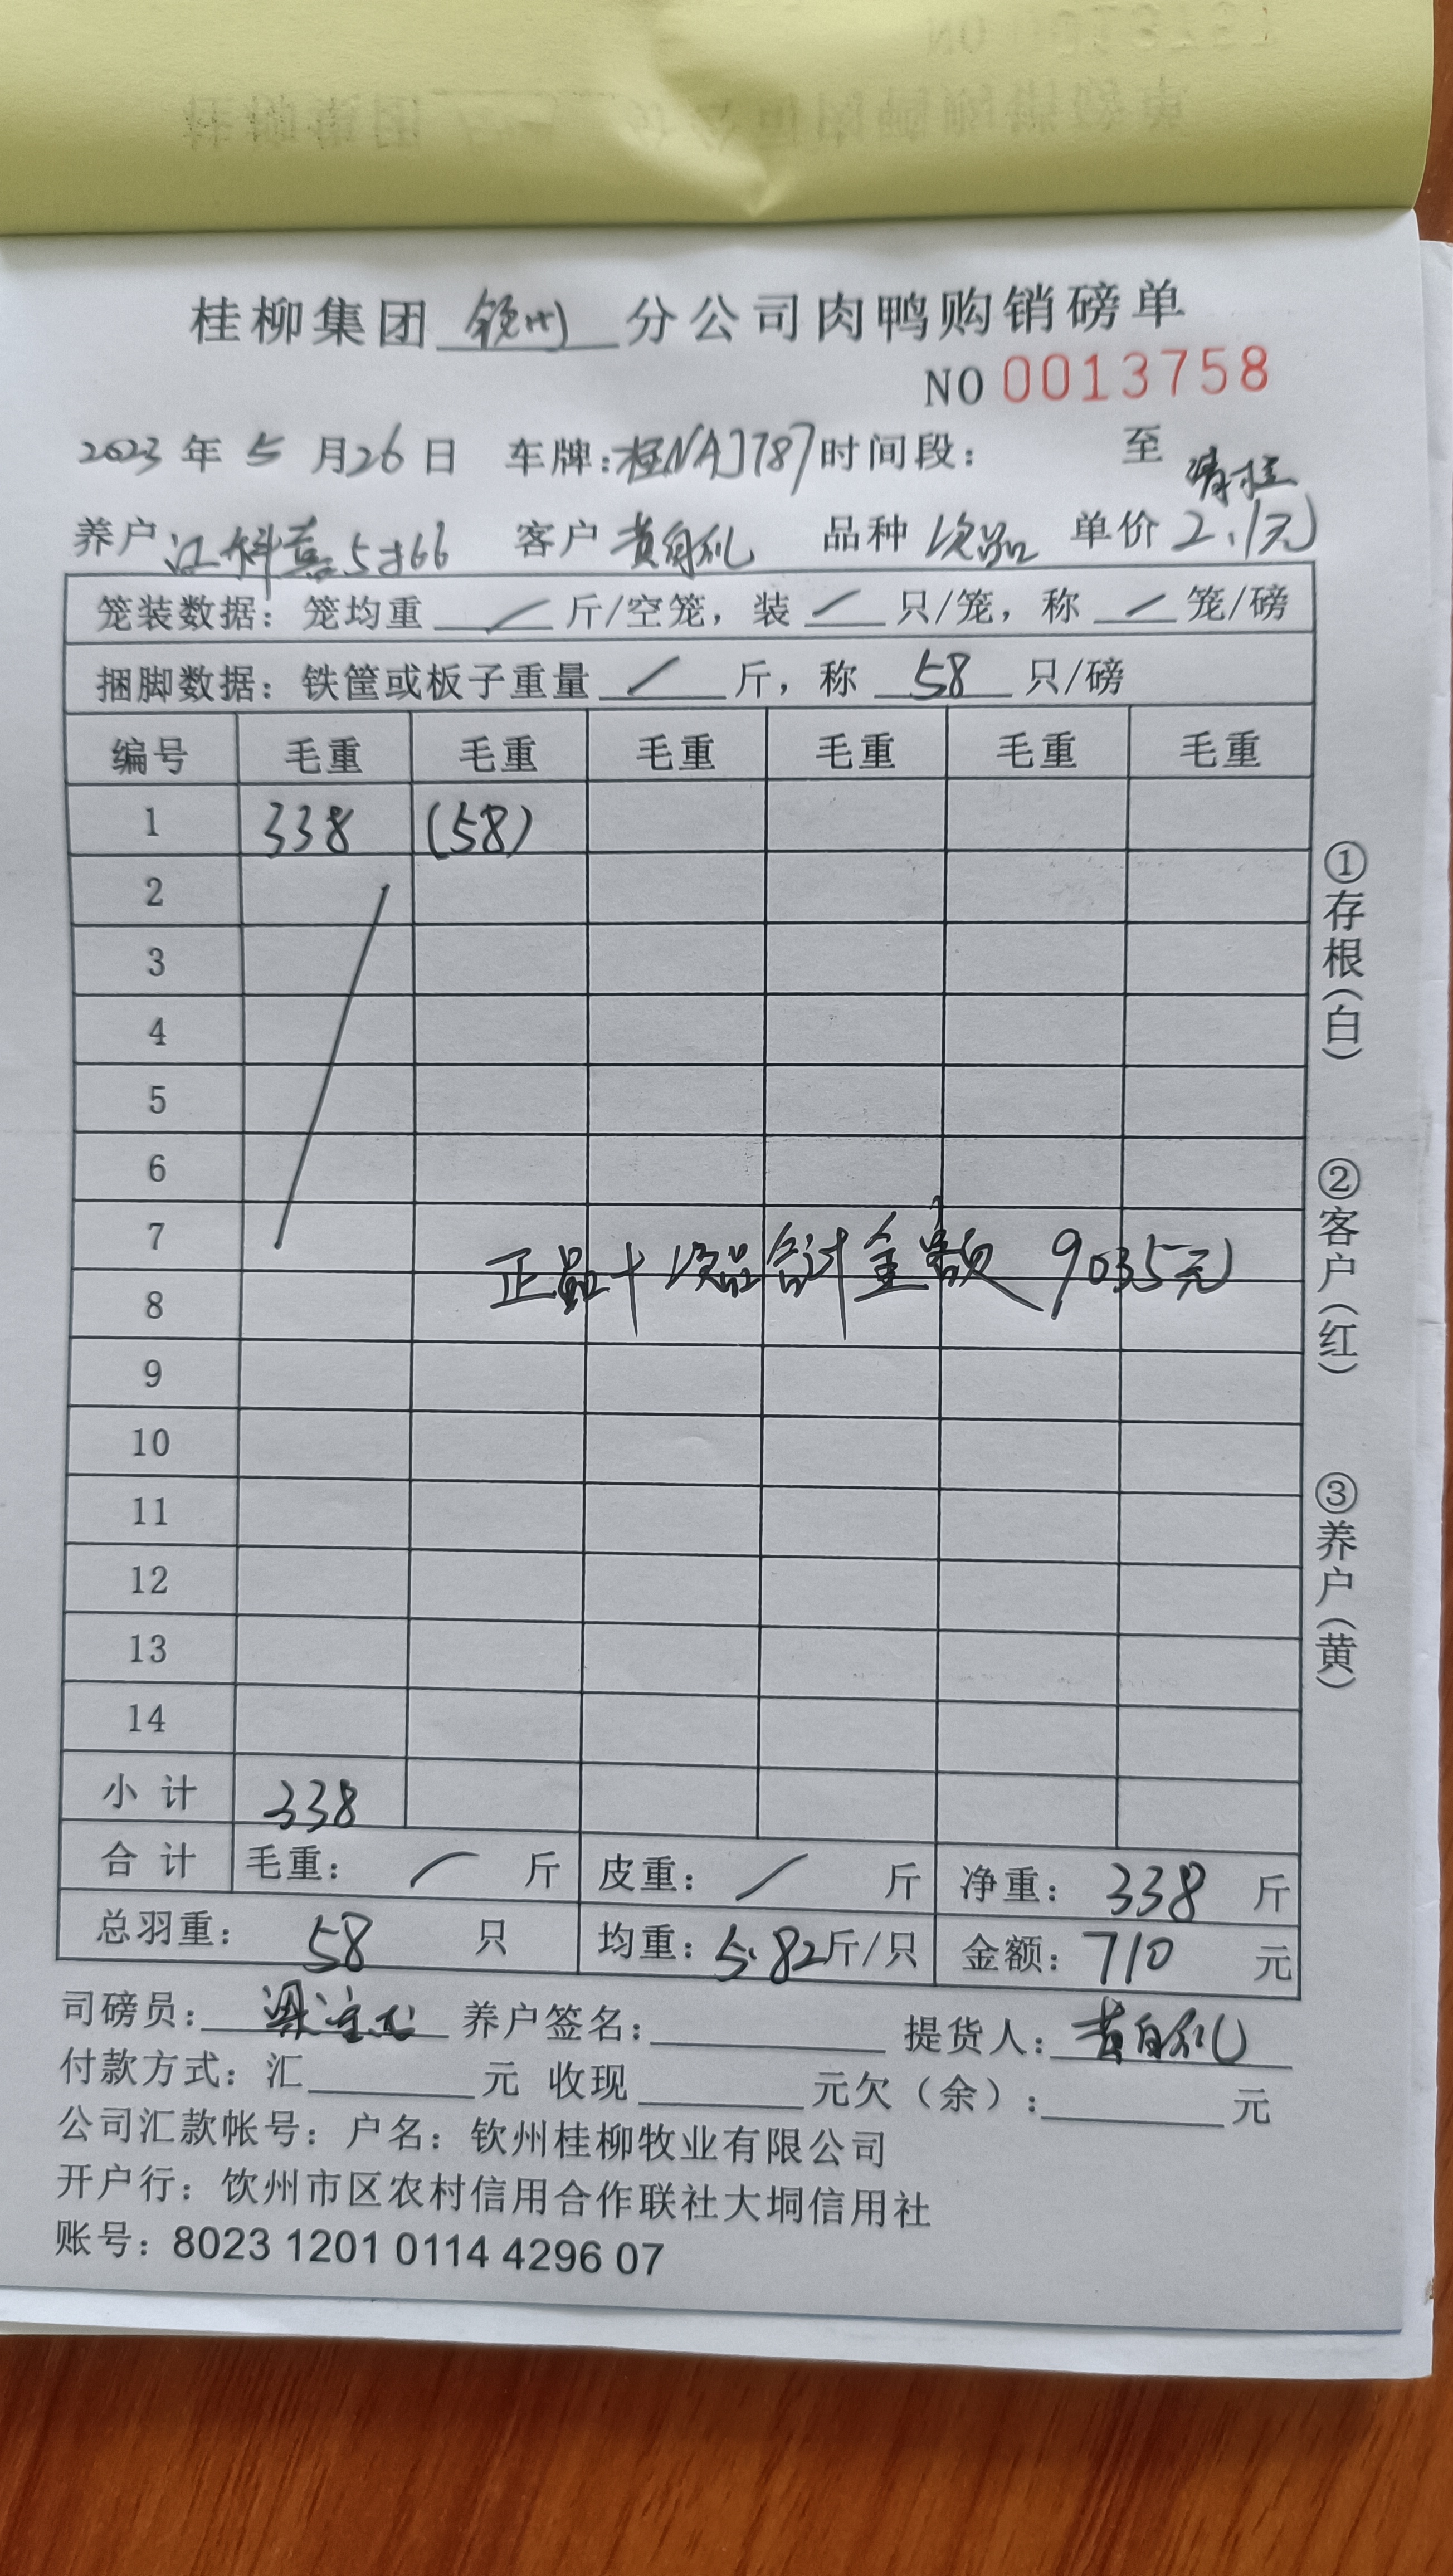 桂柳集团 钦州 分公司肉鸭购销磅单
NO 0013758
2023 年 5 月 26 日 车牌: 桂NAJ787 时间段: 至
清桂
养户 江科喜5+66 客户 黄自礼 品种 次品 单价 2.1元
笼装数据: 笼均重 / 斤/空笼, 装 / 只/笼, 称 / 笼/磅
捆脚数据: 铁筐或板子重量 / 斤, 称 58 只/磅
编号 毛重 毛重 毛重 毛重 毛重 毛重
1 338 (58)
2
3
4
5
6
7
正品+次品合计金额 9035元
8
9
10
11
12
13
14
小计 338
合计 毛重: / 斤 皮重: / 斤 净重: 338 斤
总羽重: 58 只 均重: 5.82斤/只 金额: 710 元
司磅员: 养户签名: 提货人: 黄自礼
付款方式: 汇 元 收现 元欠(余): 元
公司汇款帐号: 户名: 钦州桂柳牧业有限公司
开户行: 饮州市区农村信用合作联社大垌信用社
账号: 8023 1201 0114 4296 07
①存根(白)
②客户(红)
③养户(黄)